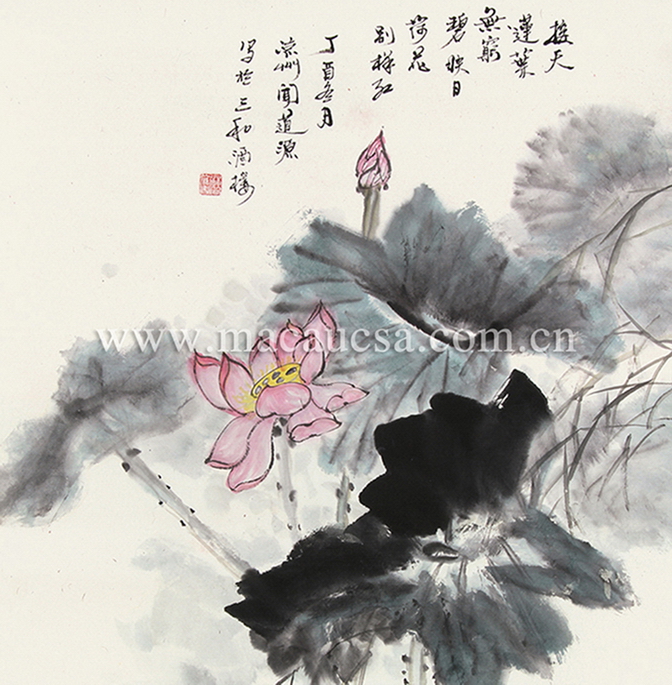 接天
蓮葉
無窮
碧映日
荷花
别样红
丁酉冬月
荣州闻道源
写於三和酒楼
www.macaucsa.com.cn